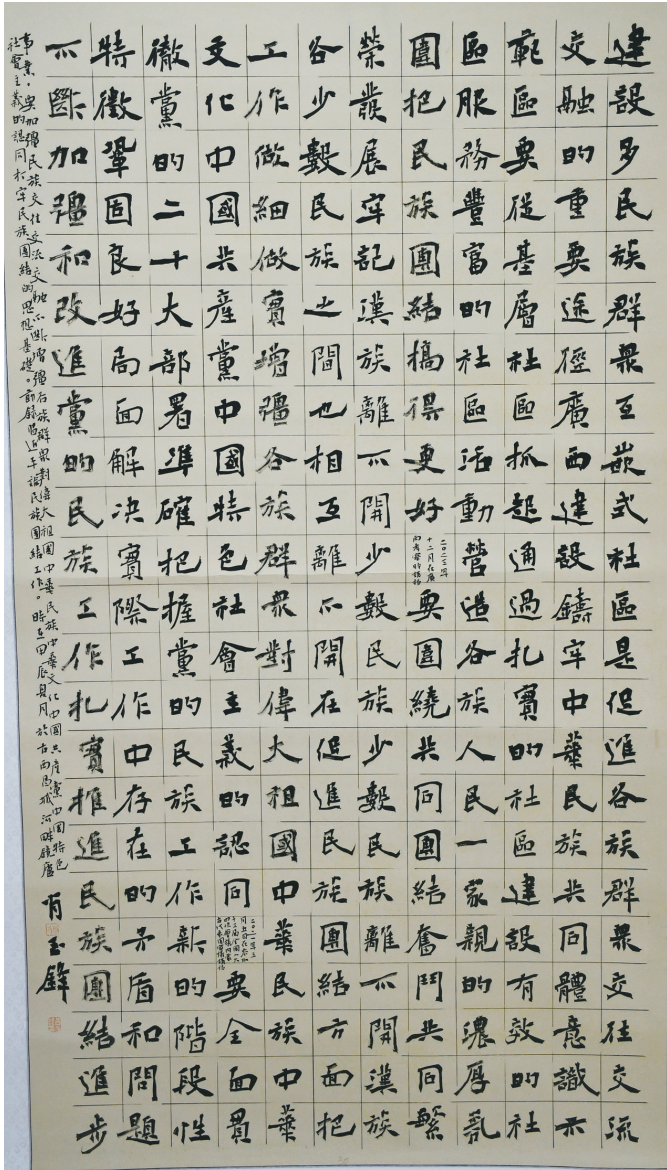 建設多民族群衆互嵌式社區是促進各族群衆交往交流
交融的重要途徑廣西建設鑄牢中華民族共同體意識示
範區要從基層社區抓起通過扎實的社區建設有效的社
區服務豐富的社區活動營造各族人民一家親的濃厚氛
圍把民族團結搞得更好
二〇二三年
十二月在廣
西考察時講話
要圍繞共同團結奮鬥共同繁
榮發展牢記漢族離不開少數民族少數民族離不開漢族
各少數民族之間也相互離不開在促進民族團結方面把
工作做細做實增彊各族群衆對偉大祖國中華民族中華
文化中國共產黨中國特色社會主義的認同
二〇二一年三
要全面貫
徹黨的二十大部署準確把握黨的民族工作新的階段性
特徵鞏固良好局面解决實際工作中存在的矛盾和問題
不斷加彊和改進黨的民族工作扎實推進民族團結進步
事業。要加彊民族交往交流交融不斷增彊各族群衆對偉大祖國中華民族中華文化中國共產黨中國特色
社會主義的認同夯牢民族團結的思想基礎。節錄習近平論民族團結工作。時在甲辰夏月於古商城河畔廬
肖玉鋒